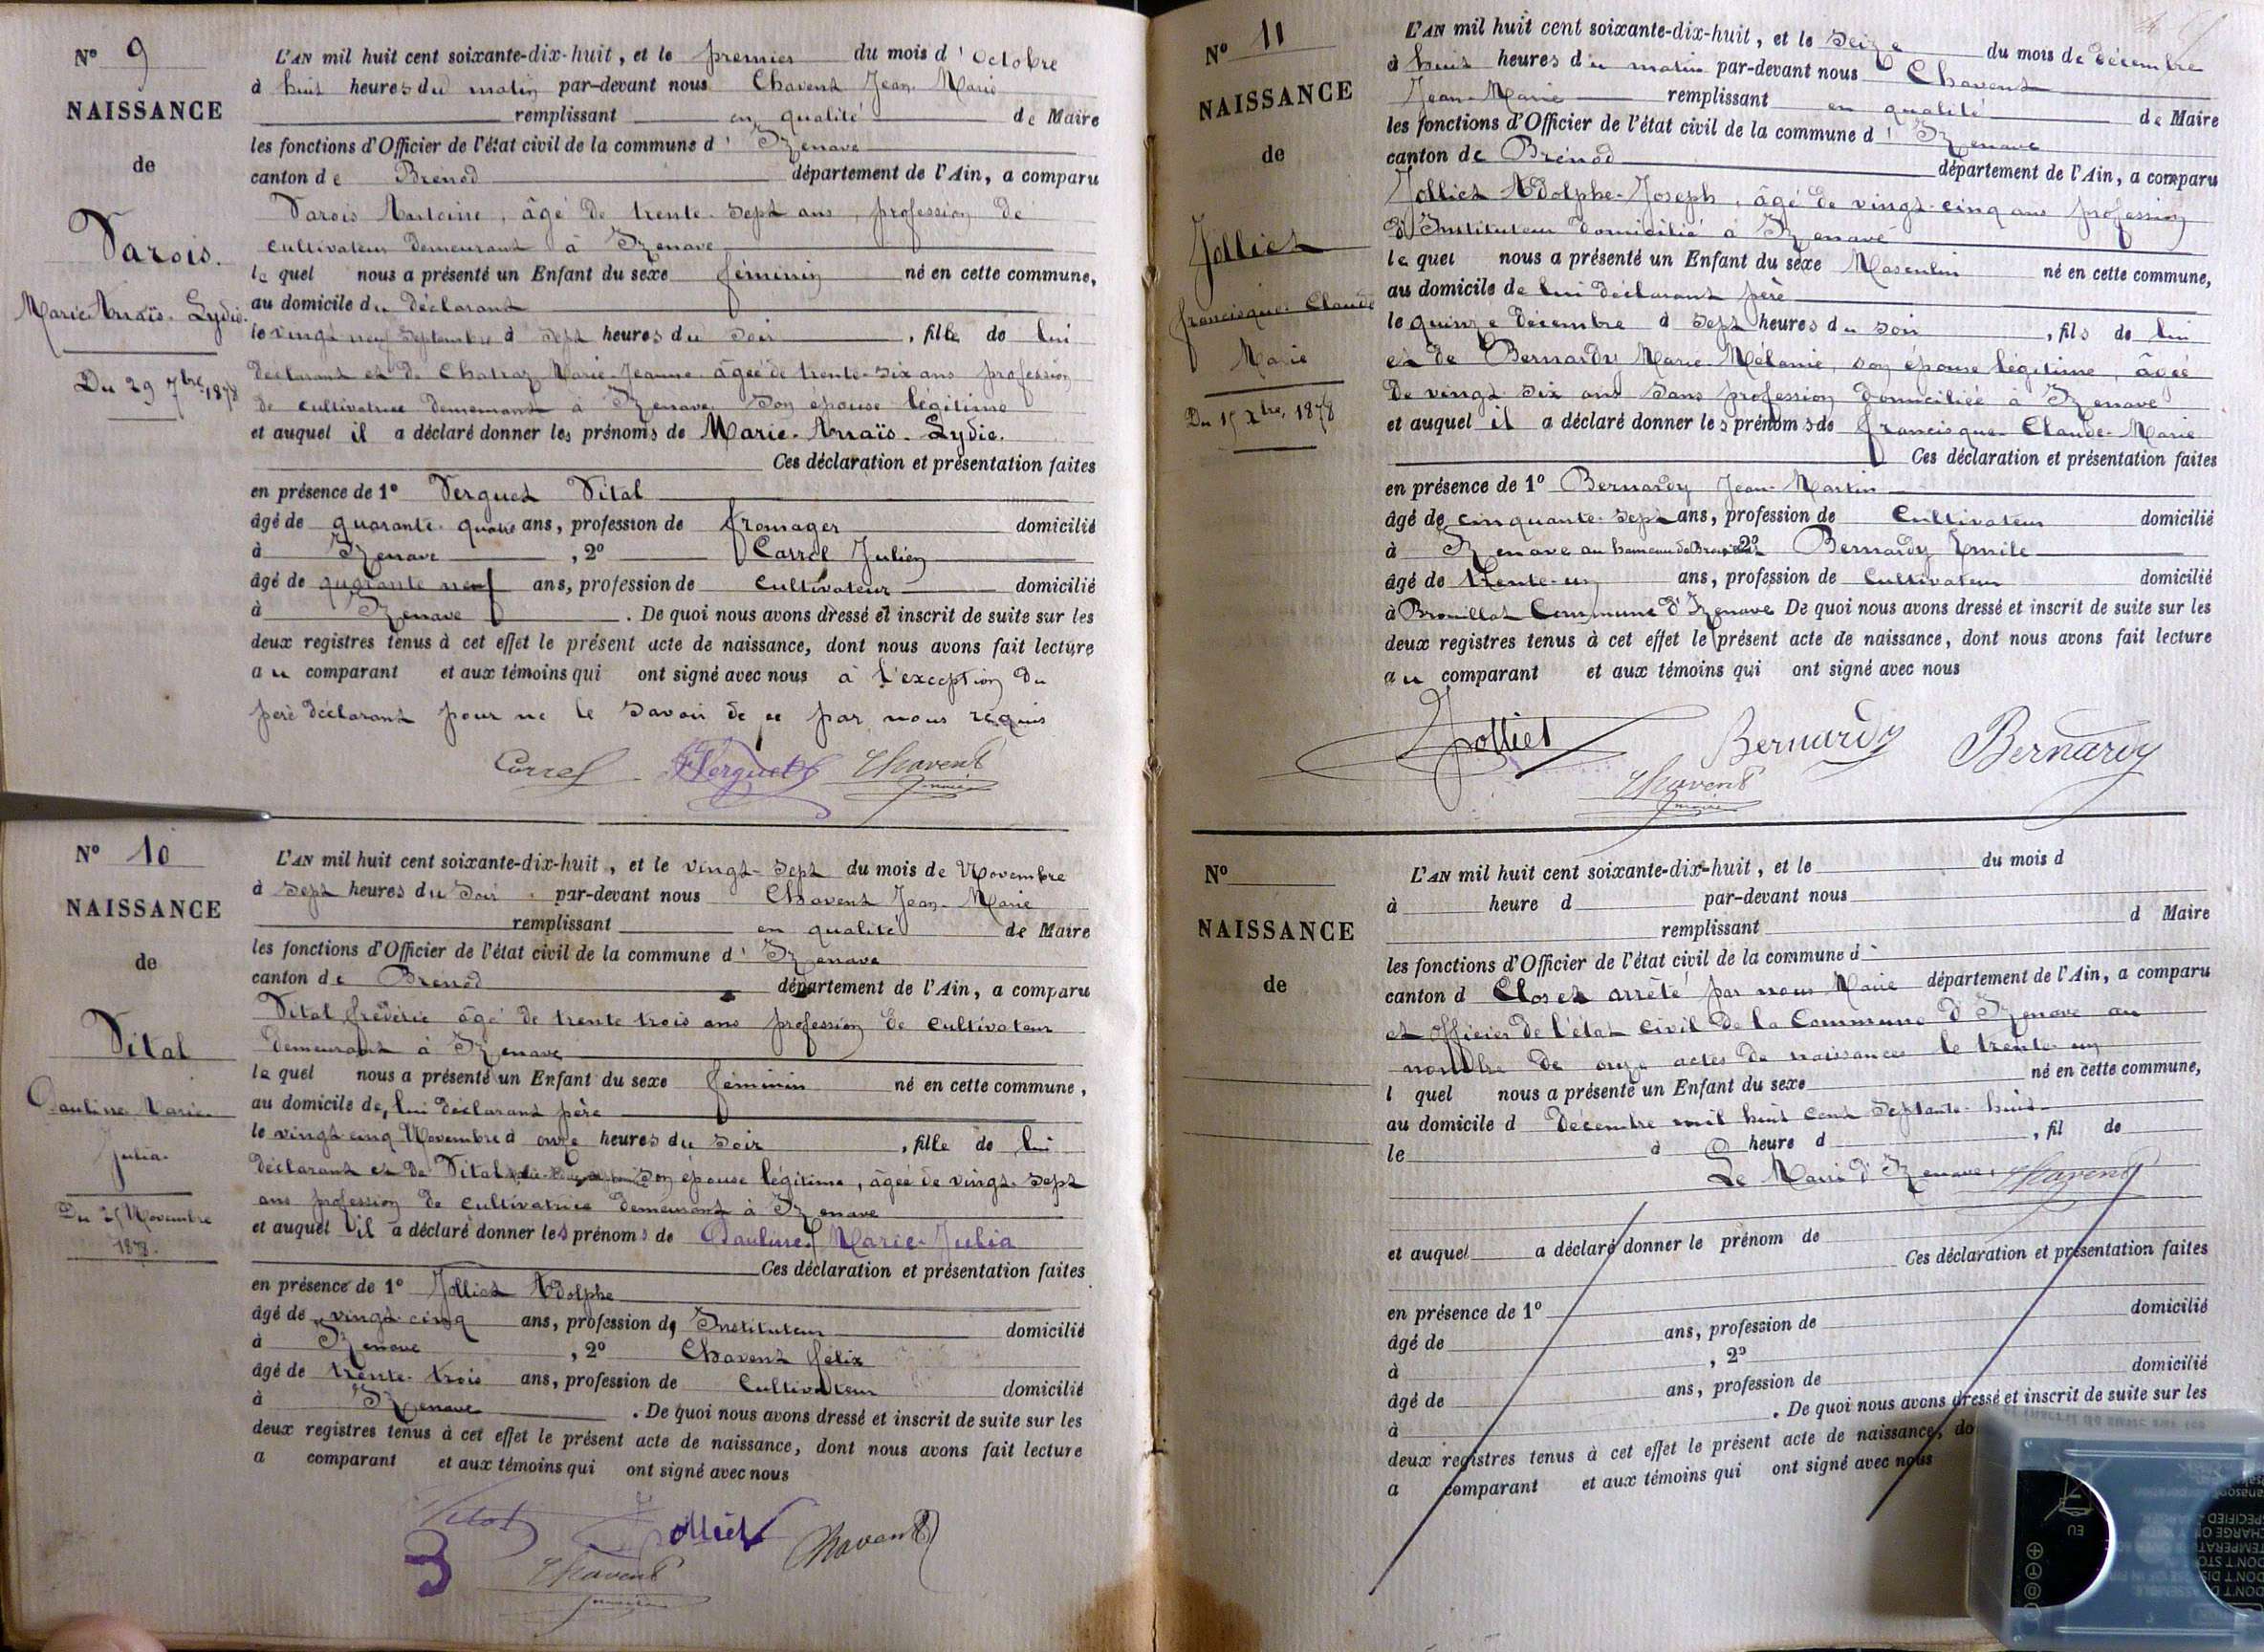 N° 9
NAISSANCE
de
Varois.
Marie-Anaïs-Lydie.
Du 29 7bre 1878
L'AN mil huit cent soixante-dix-huit, et le premier du mois d'Octobre
à huit heures du matin par-devant nous Chavent Jean-Marie
remplissant en qualité de Maire
les fonctions d'Officier de l'état civil de la commune d'Izenave
canton de Brenod département de l'Ain, a comparu
Varois Antoine, âgé de trente-sept ans, profession de
cultivateur demeurant à Izenave
lequel nous a présenté un Enfant du sexe féminin né en cette commune,
au domicile du déclarant
le vingt neuf Septembre à sept heures du soir, fille de lui
déclarant et de Chatraz Marie-Jeanne âgée de trente-six ans profession
de cultivatrice demeurant à Izenave son épouse légitime
et auquel il a déclaré donner les prénoms de Marie-Anaïs-Lydie.
Ces déclaration et présentation faites
en présence de 1° Verguet Vital
âgé de quarante-quatre ans, profession de fromager domicilié
à Izenave, 2° Carrel Julien
âgé de quarante neuf ans, profession de Cultivateur domicilié
à Izenave. De quoi nous avons dressé et inscrit de suite sur les
deux registres tenus à cet effet le présent acte de naissance, dont nous avons fait lecture
au comparant et aux témoins qui ont signé avec nous à l'exception du
père déclarant pour ne le savoir de ce par nous requis
Carrel Verguet Chavent
maire
N° 10
NAISSANCE
de
Vital
Pauline Marie
Julia
Du 25 Novembre
1878.
L'AN mil huit cent soixante-dix-huit, et le vingt-sept du mois de Novembre
à sept heures du soir par-devant nous Chavent Jean-Marie
remplissant en qualité de Maire
les fonctions d'Officier de l'état civil de la commune d'Izenave
canton de Brenod département de l'Ain, a comparu
Vital frédéric âgé de trente trois ans profession de cultivateur
demeurant à Izenave
lequel nous a présenté un Enfant du sexe féminin né en cette commune,
au domicile de lui déclarant père
le vingt-cinq Novembre à onze heures du soir, fille de lui
déclarant et de Vital son épouse légitime, âgée de vingt-sept
ans profession de cultivatrice demeurant à Izenave
et auquel il a déclaré donner les prénoms de Pauline Marie-Julia
Ces déclaration et présentation faites
en présence de 1° Jolliet Adolphe
âgé de vingt-cinq ans, profession de Instituteur domicilié
à Izenave, 2° Chavent félix
âgé de trente-trois ans, profession de Cultivateur domicilié
à Izenave. De quoi nous avons dressé et inscrit de suite sur les
deux registres tenus à cet effet le présent acte de naissance, dont nous avons fait lecture
a comparant et aux témoins qui ont signé avec nous
Vital Jolliet Chavent
3 Chavent
maire
N° 11
NAISSANCE
de
Jolliet
francisque-Claude
Marie
Du 15 Xbre 1878
L'AN mil huit cent soixante-dix-huit, et le seize du mois de décembre
à huit heures du matin par-devant nous Chavent
Jean-Marie remplissant en qualité de Maire
les fonctions d'Officier de l'état civil de la commune d'Izenave
canton de Brénod département de l'Ain, a comparu
Jolliet Adolphe-Joseph, âgé de vingt-cinq ans profession
d'Instituteur domicilié à Izenave
lequel nous a présenté un Enfant du sexe Masculin né en cette commune,
au domicile de lui déclarant père
le quinze Décembre à sept heures du soir, fils de lui
et de Bernardy Marie Mélanie, son épouse légitime, âgée
de vingt-six ans sans profession domiciliée à Izenave
et auquel il a déclaré donner les prénoms de francisque-Claude-Marie
Ces déclaration et présentation faites
en présence de 1° Bernardy Jean-Martin
âgé de cinquante-sept ans, profession de Cultivateur domicilié
à Izenave au hameau de 2° Bernardy Emile
âgé de trente-un ans, profession de Cultivateur domicilié
à Brouillat Commune d'Izenave De quoi nous avons dressé et inscrit de suite sur les
deux registres tenus à cet effet le présent acte de naissance, dont nous avons fait lecture
au comparant et aux témoins qui ont signé avec nous
Jolliet Bernardy Bernardy
Chavent
maire
N°
NAISSANCE
de
L'AN mil huit cent soixante-dix-huit, et le du mois d
à heure d par-devant nous
remplissant d Maire
les fonctions d'Officier de l'état civil de la commune d
canton d Clos et arrêté par nous Maire département de l'Ain, a comparu
et officier de l'état civil de la Commune d'Izenave au
nombre de onze actes de naissances le trente-un
l quel nous a présenté un Enfant du sexe né en cette commune,
au domicile d Décembre mil huit cent septante-huit
le à heure d, fil de
Le Maire d'Izenave, Chavent
et auquel a déclaré donner le prénom de
Ces déclaration et présentation faites
en présence de 1°
âgé de ans, profession de domicilié
à, 2°
âgé de ans, profession de domicilié
à. De quoi nous avons dressé et inscrit de suite sur les
deux registres tenus à cet effet le présent acte de naissance, do
a comparant et aux témoins qui ont signé avec nous